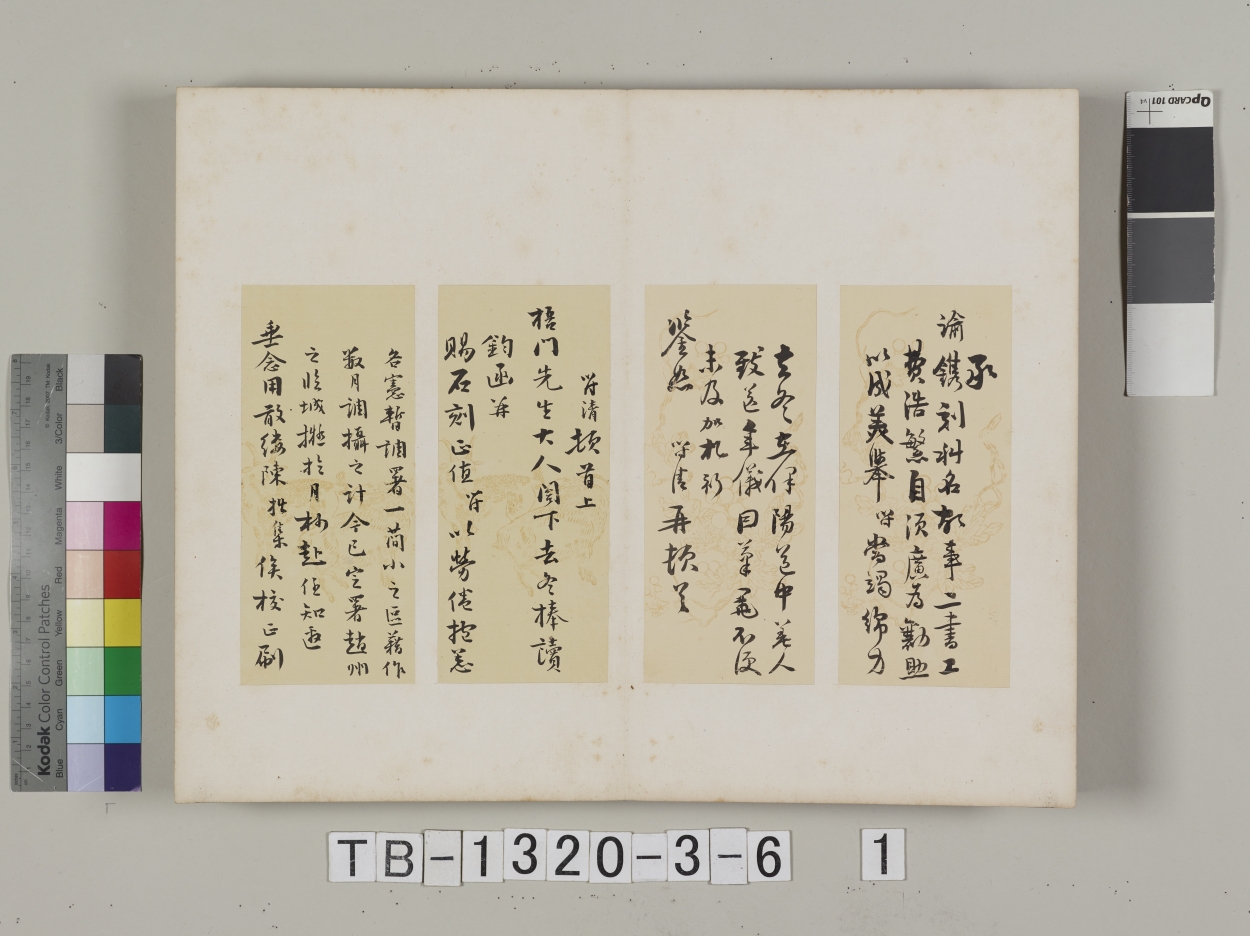 承
諭鐫刻科名故事二書工
費浩繁自須廣為勷助
以成美舉 當竭綿力
去冬在保陽道中差人
致送年儀因筆墨不便
未及加札祈
鑒恕 再頓首
清頓首上
梧門先生大人閣下去冬捧讀
鈞函并
賜石刻正值 以勞倦抱恙
各憲暫調署一簡小之區藉作
數月調攝之計今已定署趙州
之臨城擬於月杪赴任知遠
垂念用敢縷陳 集俟校正刷
TB-1320-3-6 1
Kodak Color Control Patches
Blue Cyan Green Yellow Red Magenta White 3/Color Black
QPCARD 101 v4